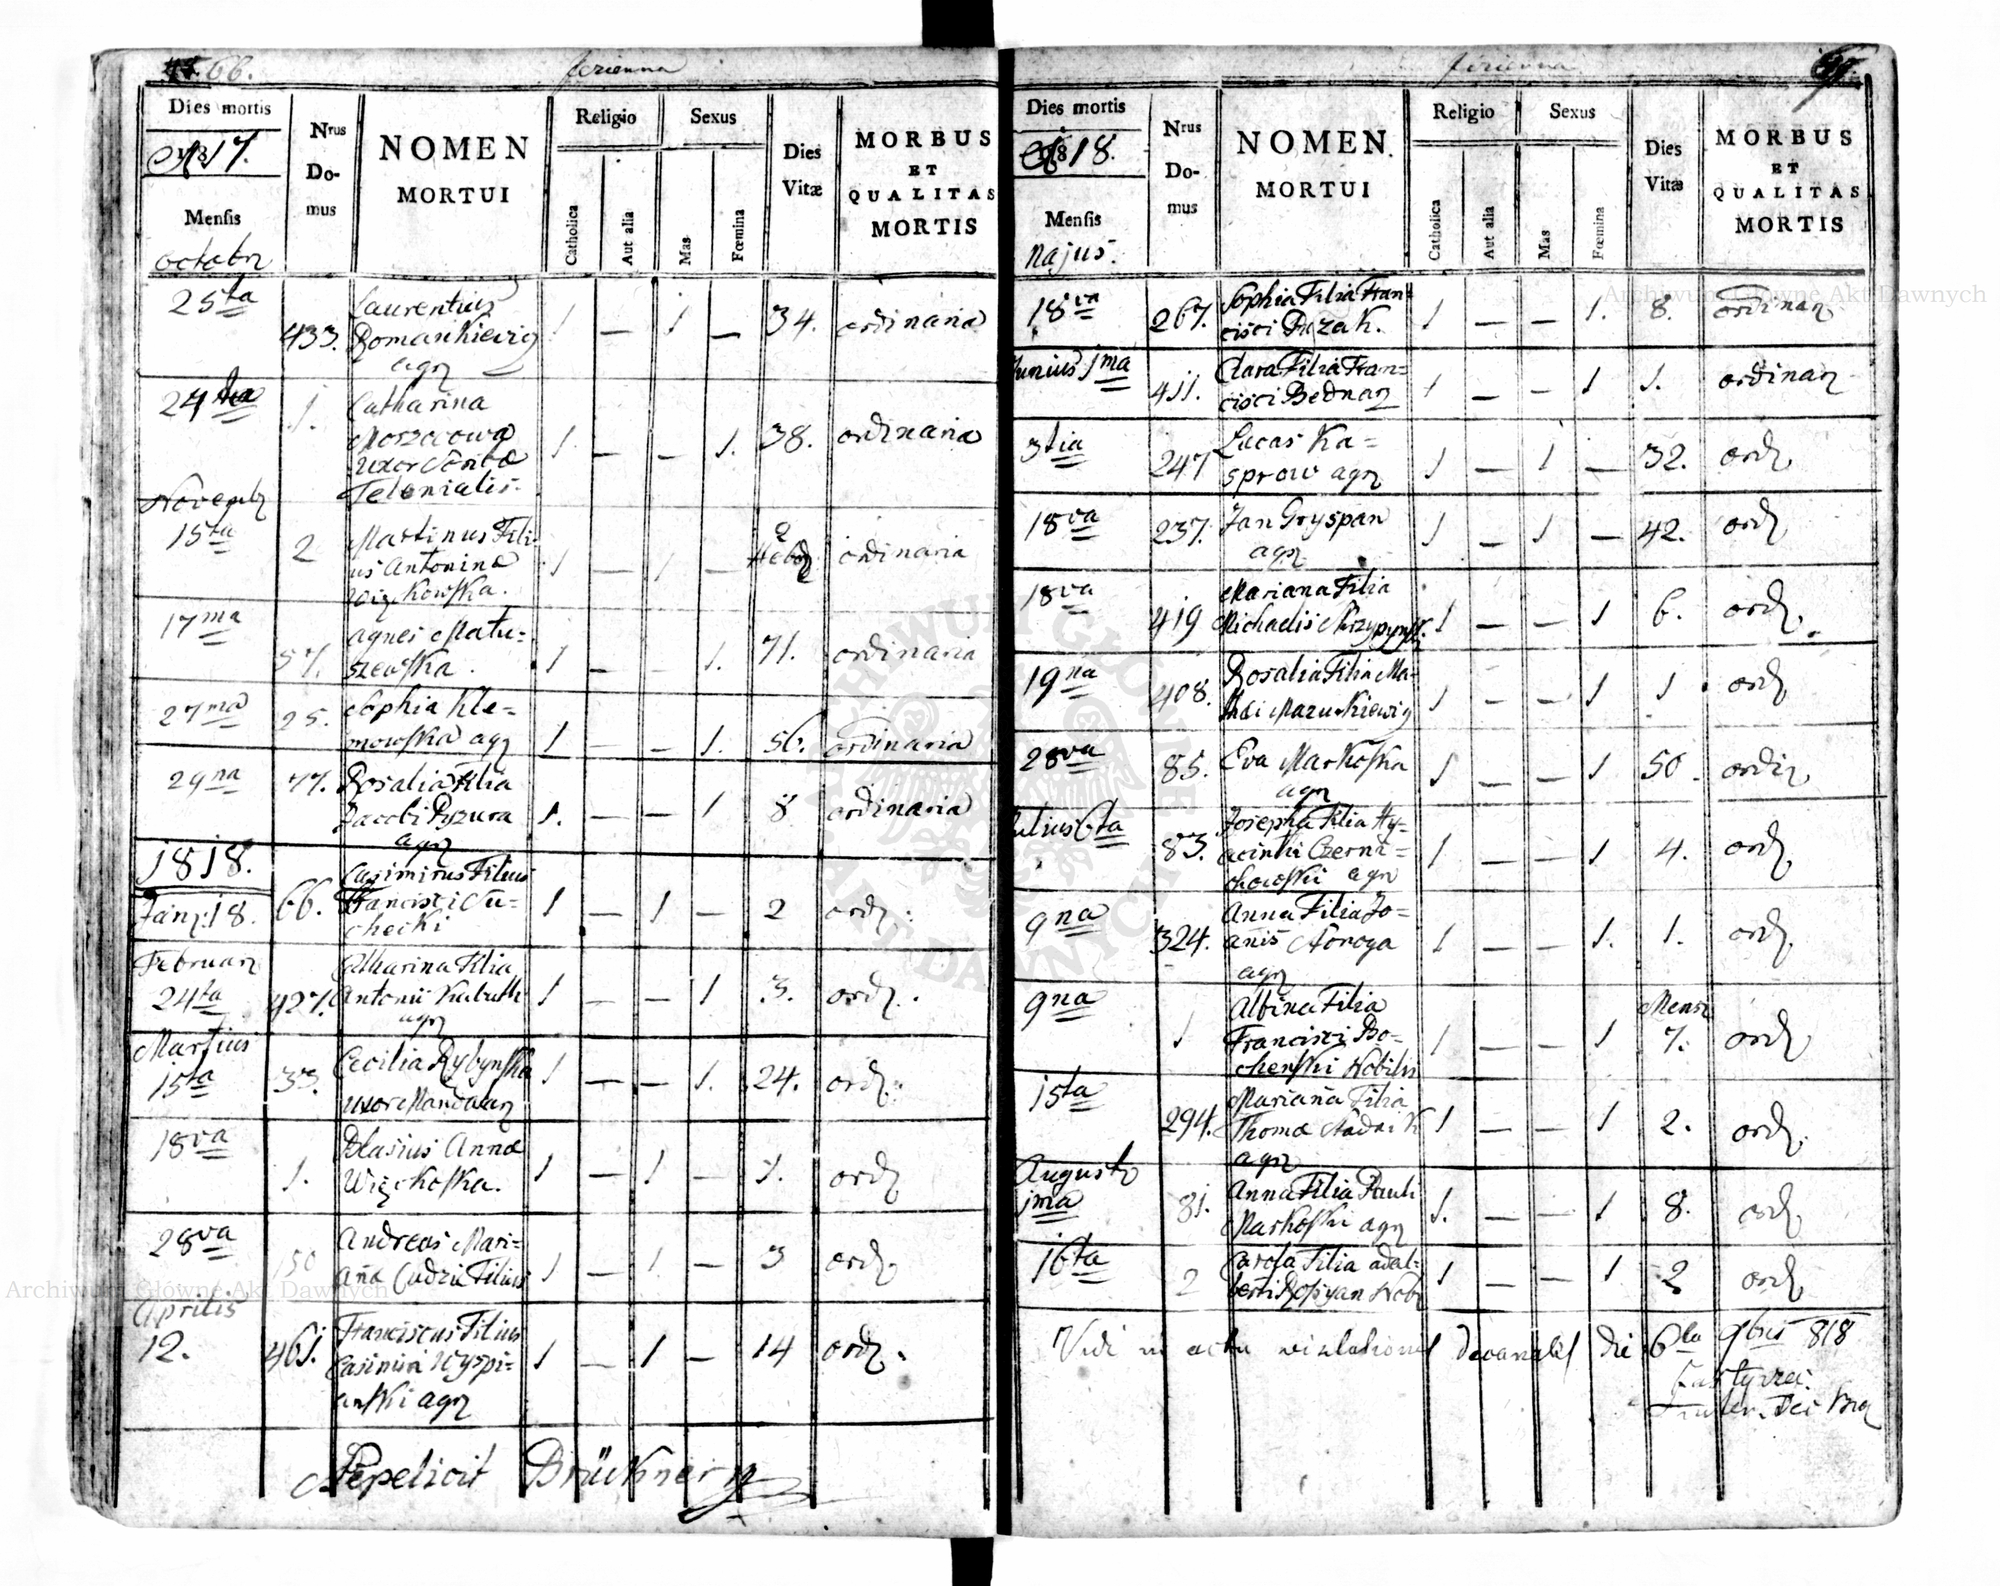 66.
Dies mortis
1817.
Mensis
octobr
Nrus
Do-
mus
NOMEN
MORTUI
Religio
Catholica
Aut alia
Sexus
Mas
Fœmina
Dies
Vitæ
MORBUS
ET
QUALITAS
MORTIS
25ta
433.
Laurentius
Romankiewicz
agr
1 — 1 — 34. ordinaria
24ta
1.
Catharina
Moszczowa
Uxor
Telonialis.
1. — — 1. 38. ordinaria
Novembr
15ta
2
Martinus Fili-
us Antonina
Więckowska.
1 — 1 — 2
Hebd
ordinaria
17ma
57.
agnes Matu-
szewska.
1 — — 1. 71. ordinaria
27ma
25.
Sophia Kle-
mowska agr
1 — — 1. 56. ordinaria
29na
77.
Rosalia Filia
Jacobi Pyzura
agr
1. — — 1 8 ordinaria
1818.
Janr: 18.
66.
Casimirus Filius
Francisci Su-
checki
1 — 1 — 2 ordr:
Februar
24ta
427.
Catharina Filia
Antonii Kabath
agr
1 — — 1 3. ordr.
Martius
15ta
33.
Cecilia Rybynska
uxor Mandatar
1 — — 1. 24. ordr:
18va
1.
Blasius Anna
Więckoska.
1 — 1 — 1. ordr
28va
150
Andreas Mari-
anna Cudziu Filius
1 — 1. — 3 ordr
Aprilis
12.
461.
Franciscus Filius
Casimiri Wyspi-
anski agr
1 — 1 — 14 ordr.
Sepelivit Brückner
Dies mortis
1818.
Mensis
Majus.
Nrus
Do-
mus
NOMEN
MORTUI
Religio
Catholica
Aut alia
Sexus
Mas
Fœmina
Dies
Vitæ
MORBUS
ET
QUALITAS
MORTIS
18va
267.
Sophia Filia Fran-
cisci Duzak.
1 — — 1. 8. ordinar
Junius 1ma
411.
Clara Filia Fran-
cisci Bednarz
1 — — 1 1. ordinar
3tia
247
Lucas Ka-
sprow agr
1 — 1 — 32. ordr
18va
237.
Jan Gryspan
agr
1 — 1 — 42. ordr
18va
419
Mariana Filia
Michaelis
1 — — 1 6. ordr.
19na
408.
Rosalia Filia Ma-
thei Mazurkiewicz
1 — — 1 1 ordr
28va
85.
Eva Markoska
agr
1 — — 1 50. ordir
Julius 6ta
83.
Josepha Filia Hy-
acinthi Czerni-
chowski agr
1 — — 1 4. ordr
9na
324.
Anna Filia Jo-
anis Sroga
agr
1 — — 1. 1. ordr
9na
1
Albina Filia
Francisci Bo-
chenski Nobilis
1 — — 1 Mens
7. ordr
15ta
294.
Mariana Filia
Thoma Sadzik
agr
1 — — 1 2. ordr
Augustr
1ma
81.
Anna Filia Pauli
Markoski agr
1. — — 1 8. ordr
16ta
2
Carola Filia adal-
berti Nobr
1 — — 1 2 ordr
Vidi in actu visitationis decanalis die 6ta 9bris 818
Archiwum Główne Akt Dawnych
Archiwum Główne Akt Dawnych
ARCHIWUM GŁÓWNE AKT DAWNYCH